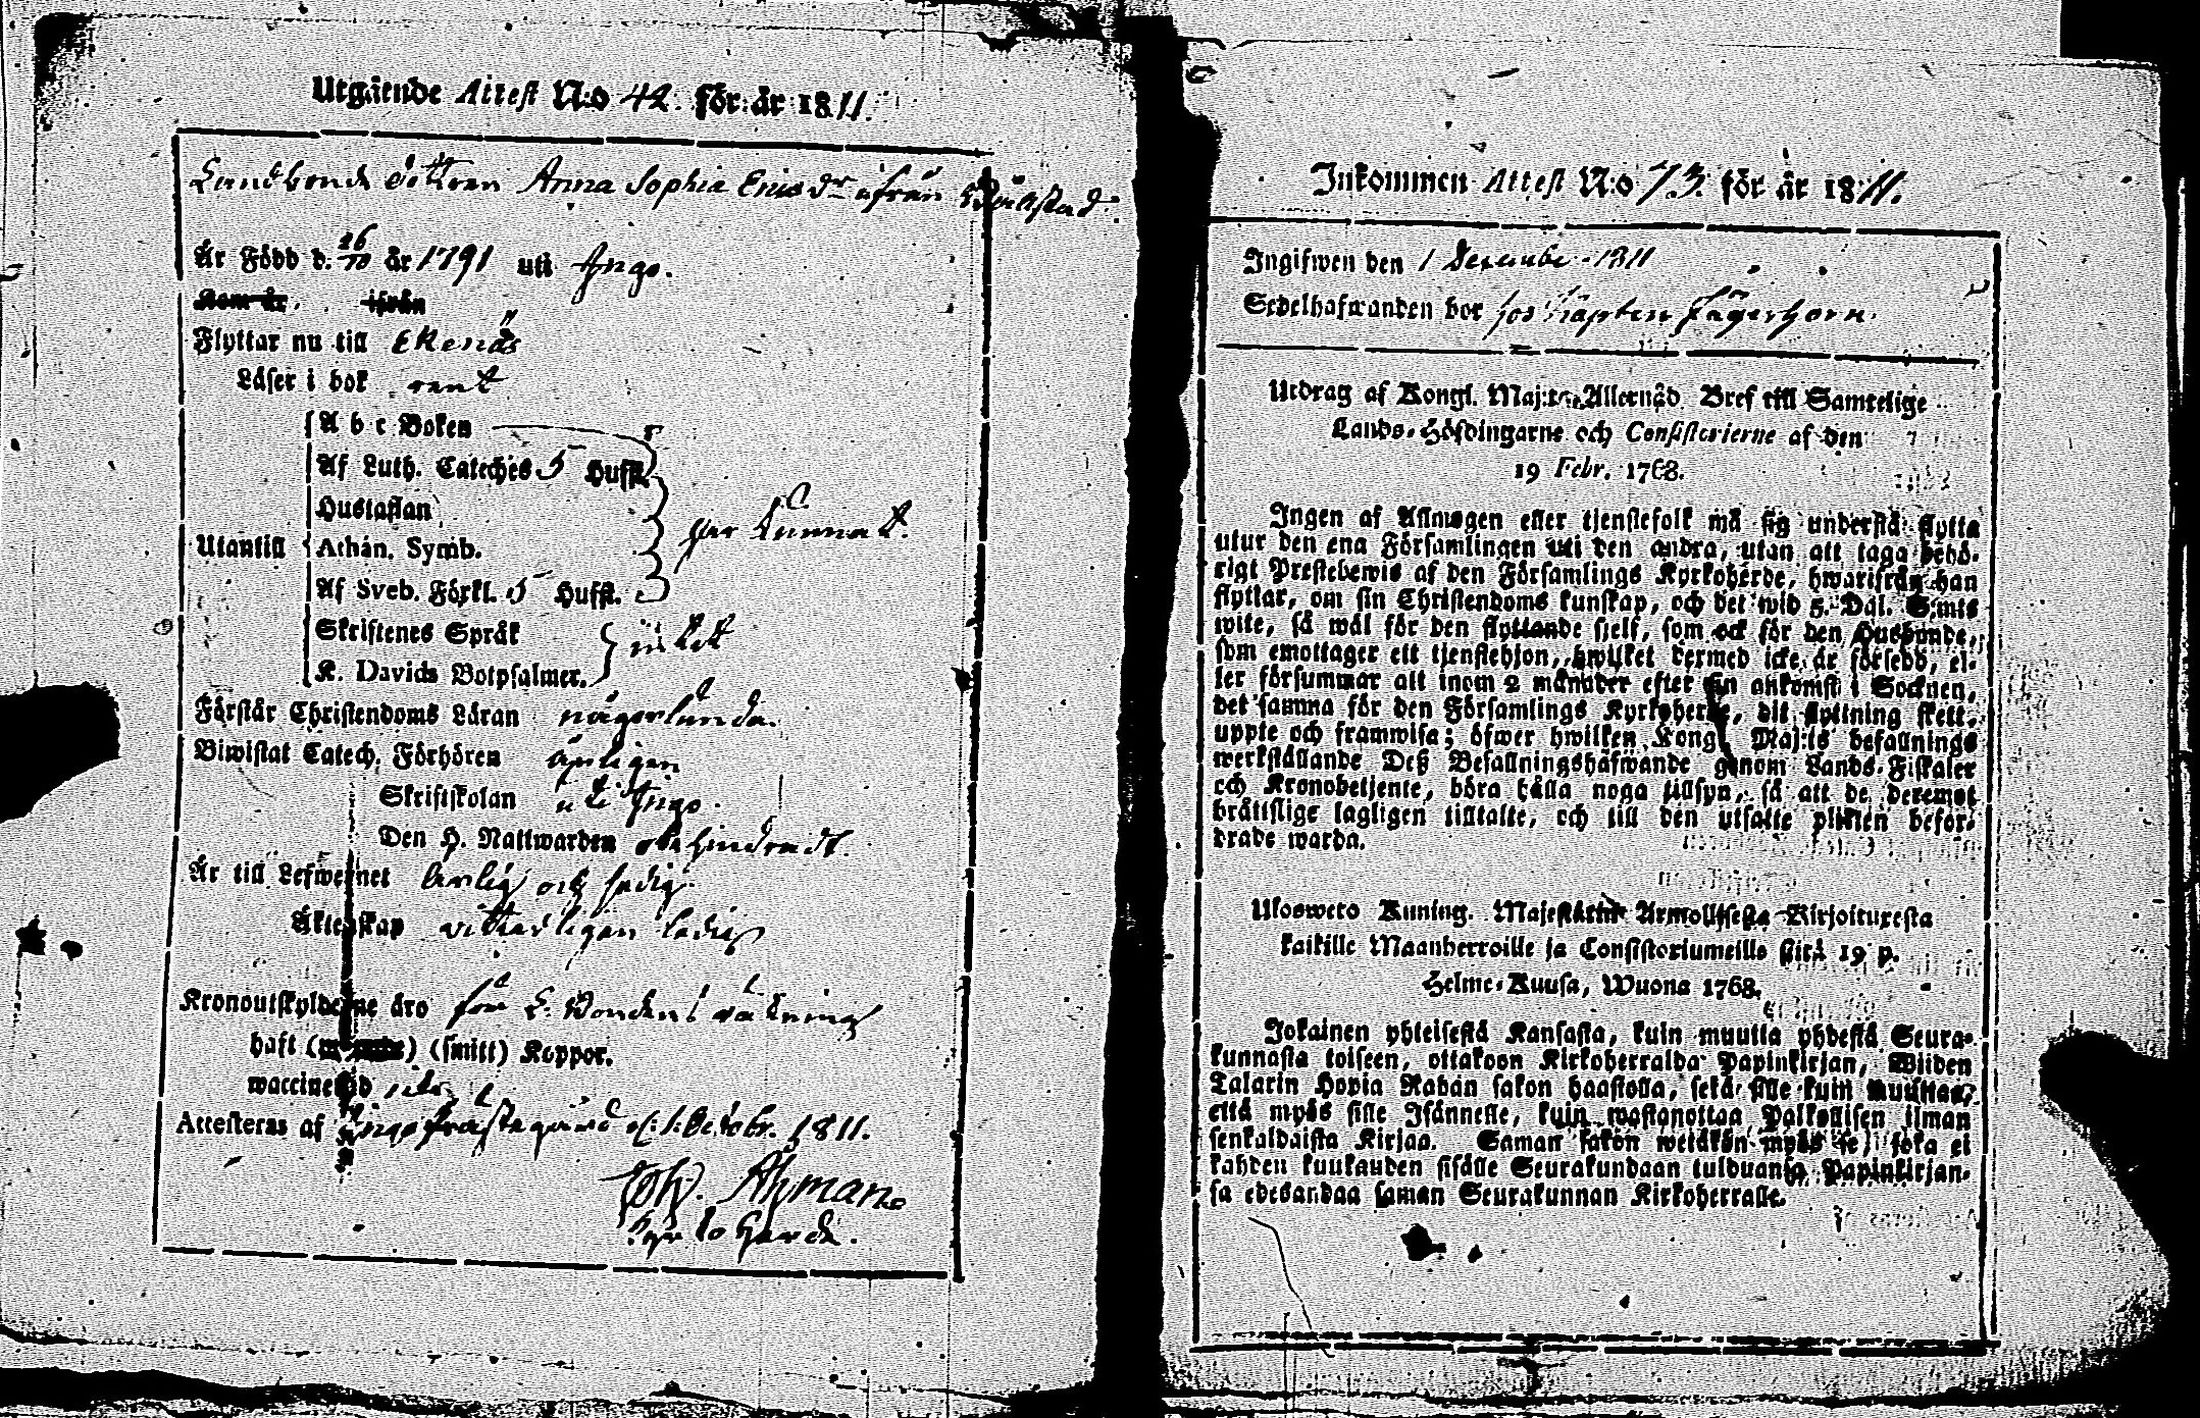 Utgående Attest N:o 42. för år 1811.
Landbonde dottren Anna Sophia Ericsdr ifrån
Är Född d. 26/10 år 1791 uti Ingo.
Kom år, ifrån
Flyttar nu till Ekenäs
Läser i bok rent
A b c Boken
Af Luth. Cateches 5 Hufst.
Hustaflan
Utantill Athan. Symb.
har lärnat.
Af Sveb. Förkl. 5 Hufst.
Skriftenes Språk
intet
K. Davids Botpsalmer.
Förstår Christendoms Läran någorlunda.
Biwistat Catech. Förhören årligen
Skriftskolan uti Ingo.
Den H. Nattwarden obehindradt.
Är till Lefwernet ärlig och sedig.
Äktenskap vitterligen ledig
Kronoutskylderne äro för L. Bondens räkning
haft () (smitt) Koppor.
waccinerad
Attesteras af Ingo Prästegård d. 1. Octobr. 1811.
Joh. Ahman
Kyrkoherde.
Inkommen Attest N:o 73. för år 1811.
Ingifwen den 1 December 1811
Sedelhafwanden bor hos Kapten Jägerhorn.
Utdrag af Kongl. Maj:ts Allernåd. Bref till Samtelige
Lands-Höfdingarne och Consistorierne af den
19 Febr. 1768.
Ingen af Allmogen eller tjenstefolk må sig understå flytta
utur den ena Församlingen uti den andra, utan att taga behö-
rigt Prestebewis af den Församlings Kyrkoherde, hwarifrån han
flyttar, om sin Christendoms kunskap, och det wid 5. Dal. S:mts
wite, så wäl för den flyttande sjelf, som ock för den Husbonde,
som emottager ett tjenstehjon, hwilket dermed icke är försedd, el-
ler försummar att inom 2 månader efter sin ankomst i Socknen,
det samma för den Församlings Kyrkoherde, dit flyttning skett,
uppte och framwisa; öfwer hwilken Kongl. Maj:ts befallnings
werkställande Deß Befallningshafwande genom Lands-Fiskaler
och Kronobetjente, böra hålla noga tillsyn, så att de deremot
bråttslige lagligen tilltalte, och till den utsatte plikten beford-
rade warda.
Uloswero Kuning. Majestätin Armollisesta Kirjoituxesta
kaikille Maanherroille ja Consistoriumeille siitä 19 p.
Helme-Kuusa, Wuona 1768.
Jokainen yhteisestä Kansasta, kuin muutta yhdestä Seura-
kunnasta toiseen, ottakoon Kirkoherralda Papinkirjan, Wiiden
Talarin Hopia Rahan sakon haastolla, sekä sille kuin muuttaa,
että myös sille Isännelle, kuin wastanottaa Palkollisen ilman
senkaldaista Kirjaa. Saman sakon wetäkön myös se, joka ei
kahden kuukauden sisälle Seurakundaan tulduansa Papinkirjan-
sa edesandaa saman Seurakunnan Kirkoherralle.